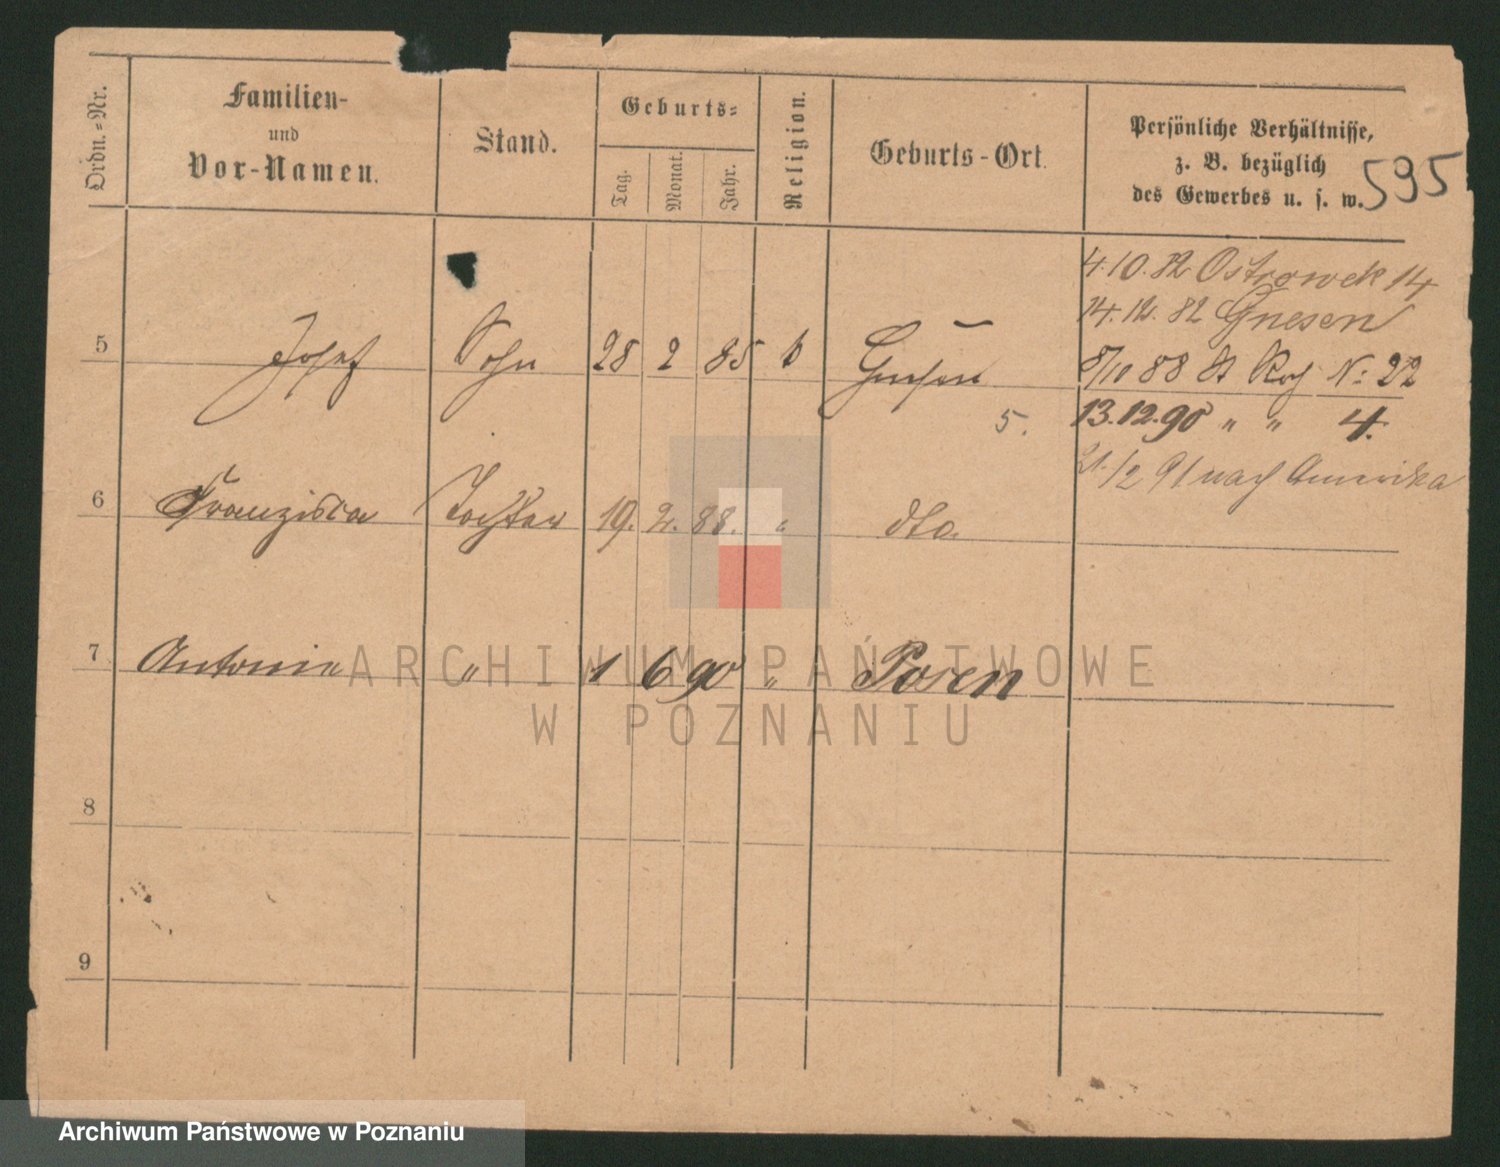 Ordn.-Nr.
Familien-
und
Vor-Namen.
Stand.
Geburts-
Tag.
Monat.
Jahr.
Religion.
Geburts-Ort.
Persönliche Verhältnisse,
z. B. bezüglich
des Gewerbes u. s. w.
595
4.10.82 Ostrowek 14
14.12.82 Gnesen
5 Josef Sohn 28 2 85 k Gnesen
8/10 88 St Roch No 22
5.
13.12.90 " " 4.
21./2 91 nach Amerika
6 Franziska Tochter 19. 2. 88. " dto.
7 Antonie " 1 6 90 " Posen
8
9
ARCHIWUM PAŃSTWOWE
W POZNANIU
Archiwum Państwowe w Poznaniu